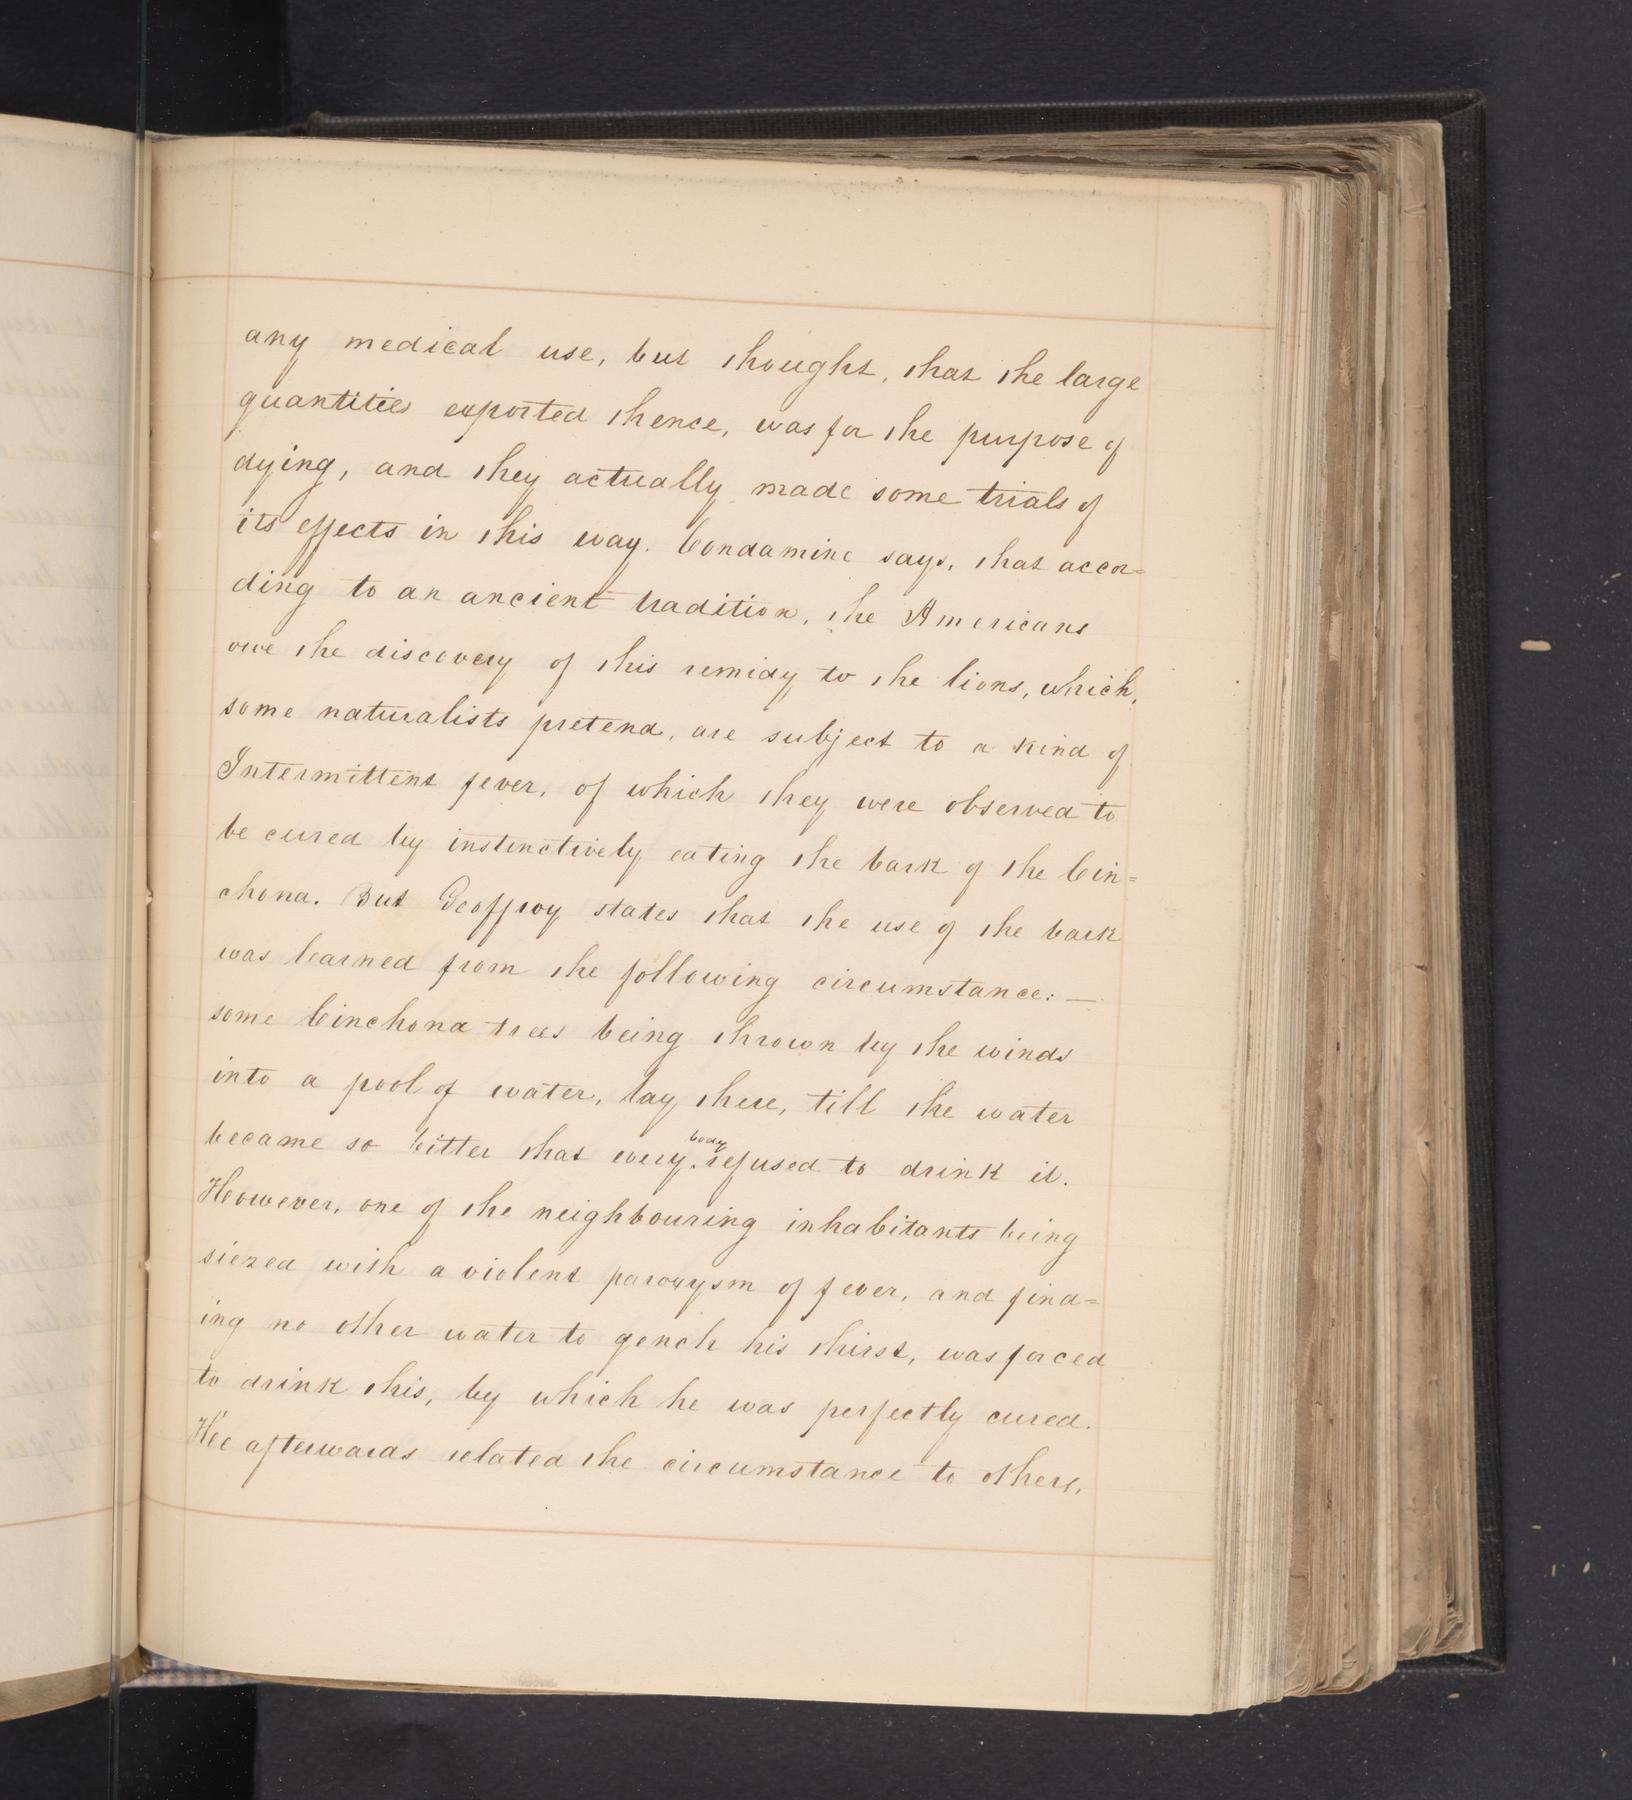 any medical use, but thought, that the large
quantities exported thence, was for the purpose of
dying, and they actually made some trials of
its effects in this way. Condamine says, that accor=
ding to an ancient tradition, the Americans
owe the discovery of this remidy to the lions, which,
some naturalists pretend, are subject to a kind of
Intermittent fever, of which they were observed to
be cured by instinctively eating the bark of the Cin=
chona. But Geoffroy states that the use of the bark
was learned from the following circumstance: —
some Cinchona trees being thrown by the winds
into a pool of water, lay there, till the water
became so bitter that every body refused to drink it.
However, one of the neighbouring inhabitants being
siezed with a violent paroxysm of fever, and find=
ing no other water to qench his thirst, was forced
to drink this, by which he was perfectly cured.
He afterwards related the circumstance to others,